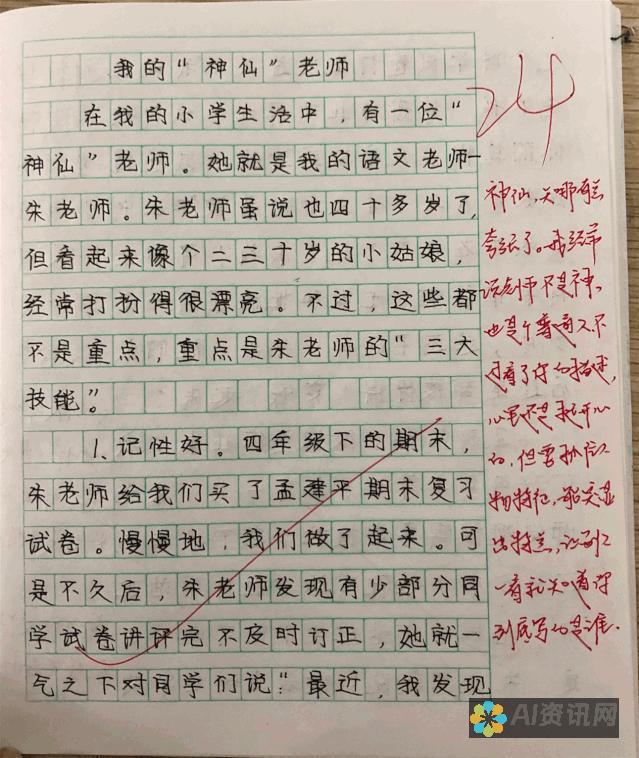 我的“神仙”老师
在我的小学生活中，有一位“
神仙”老师。她就是我的语文老师—
朱老师。朱老师虽说也四十多岁了，
但看起来像个二三十岁的小姑娘，
经常打扮得很漂亮。不过，这些都
不是重点，重点是朱老师的“三大
技能”。
1、记性好。四年级下的期末，
朱老师给我们买了孟建平期末复习
试卷。慢慢地，我们做了起来。可
是不久后，朱老师发现有少部分同
学试卷讲评完不及时订正，她就一
气之下对同学们说“最近，我发现
24
神仙，夸张了。我经常
说老师不是神。
也是个普通人不
过看了你的描述，
心里还是挺开心
的，但要抓住人
物特征，能突显
出特点，让别人
一看就知道你
到底写的是谁.
AI资讯网